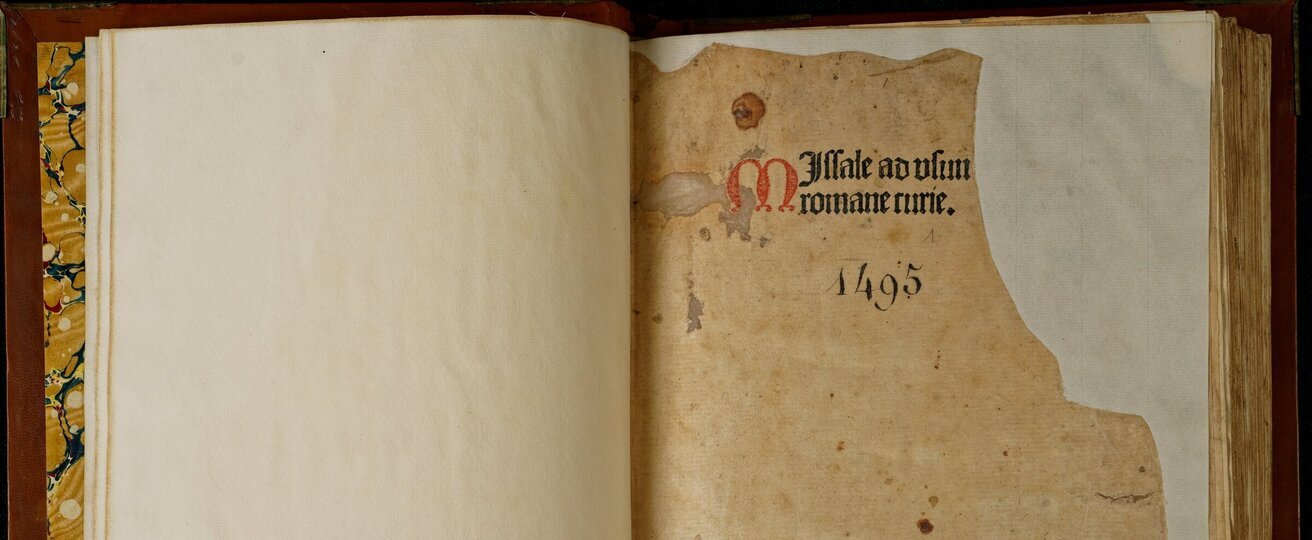 MIssale ad vsum
romane curie.
1495